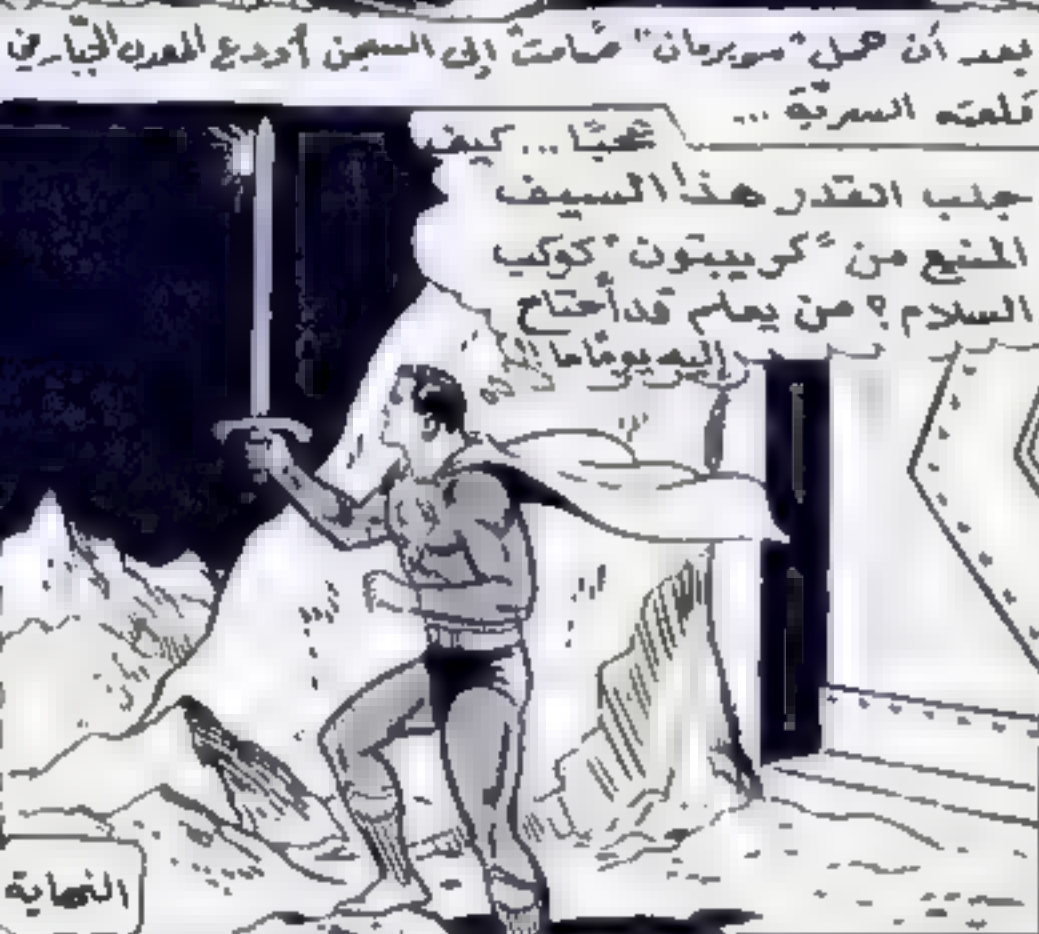 بعد أن حمل "سوبرمان" صامت إلى السجن أودع المعدن الجبّار في
قلعته السريّة ...
عجبًا ... كيف
جلب القدر هذا السيف
المنيع من "كريبتون" كوكب
السلام؟ من يعلم قد أحتاج
إليه يومًا ما
النهاية